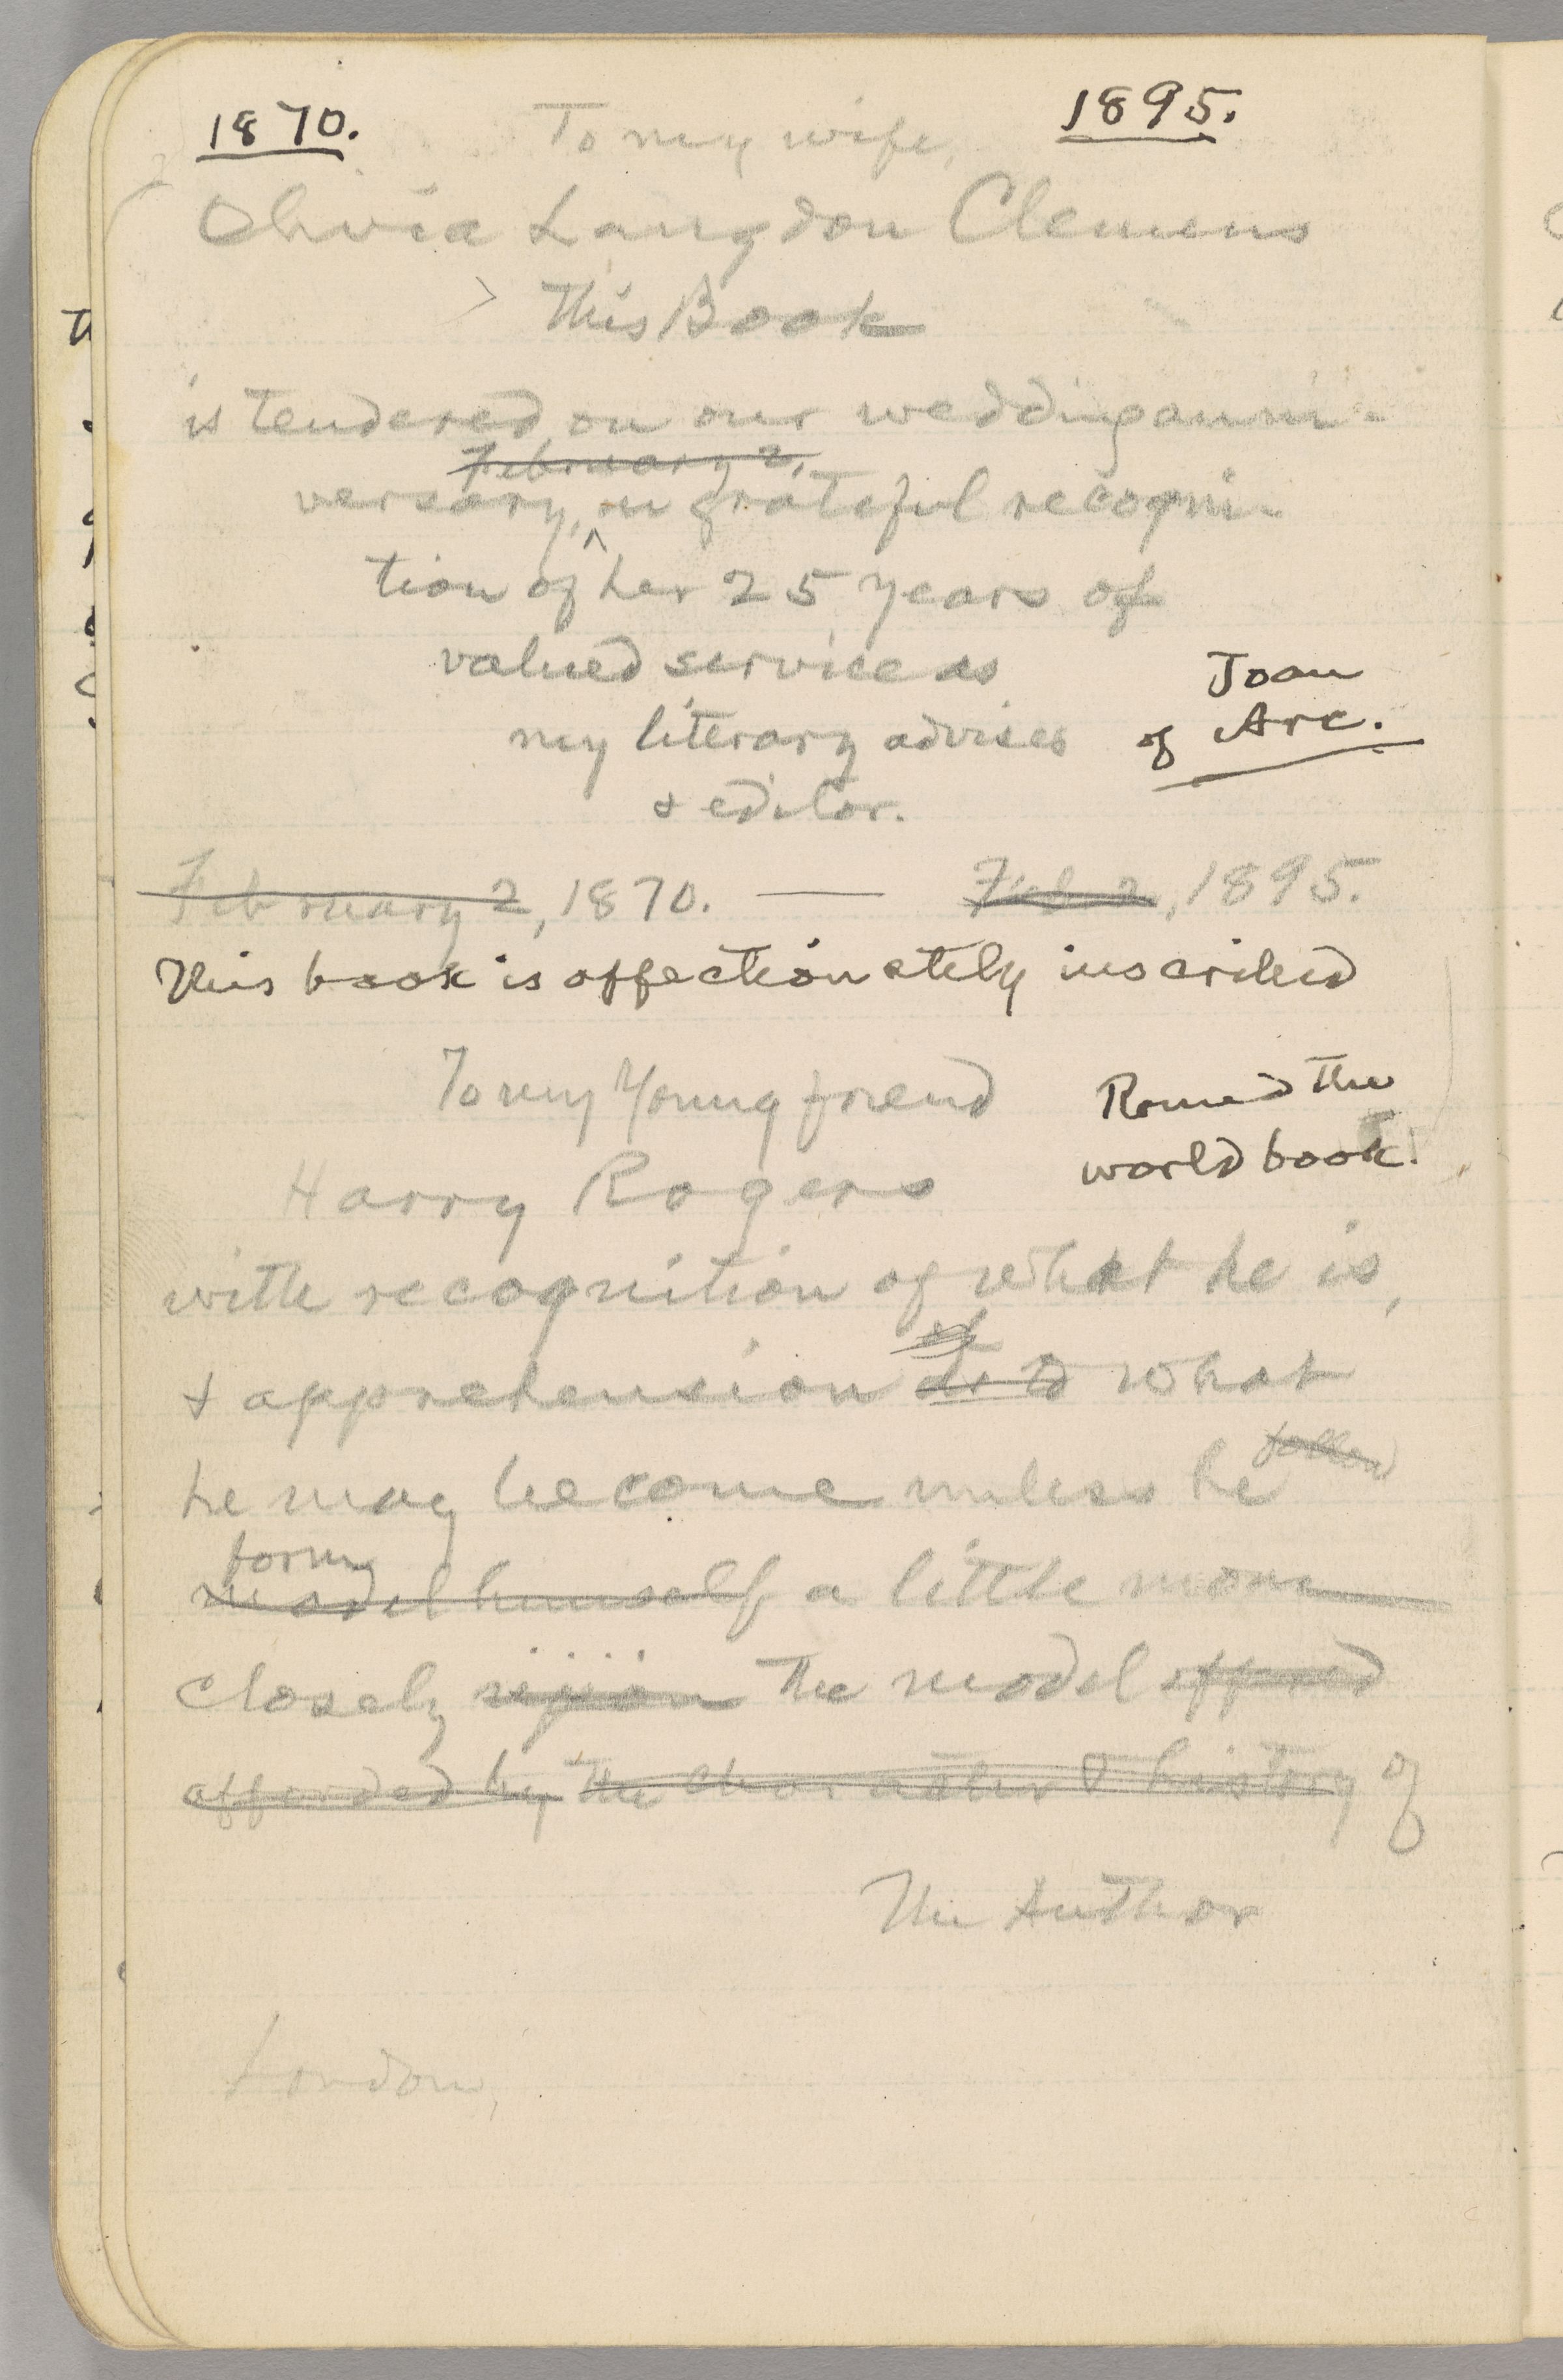 1870. To my wife, 1895.
Olivia Langdon Clemens
This Book
is tendered on our wedding anni-
February 2,
versary, in grateful recogni-
tion of her 25 years of
valued service as
my literary adviser
& editor.
Joan
of Arc.
February 2, 1870. — Feb. 2, 1895.
This book is affectionately inscribed
To my Young friend
Harry Rogers
Round the
world book.
with recognition of what he is,
of
& apprehension as to what
he may become unless he
form
model himself a little more
closely upon the model
afforded by the character & history of
The Author
London,